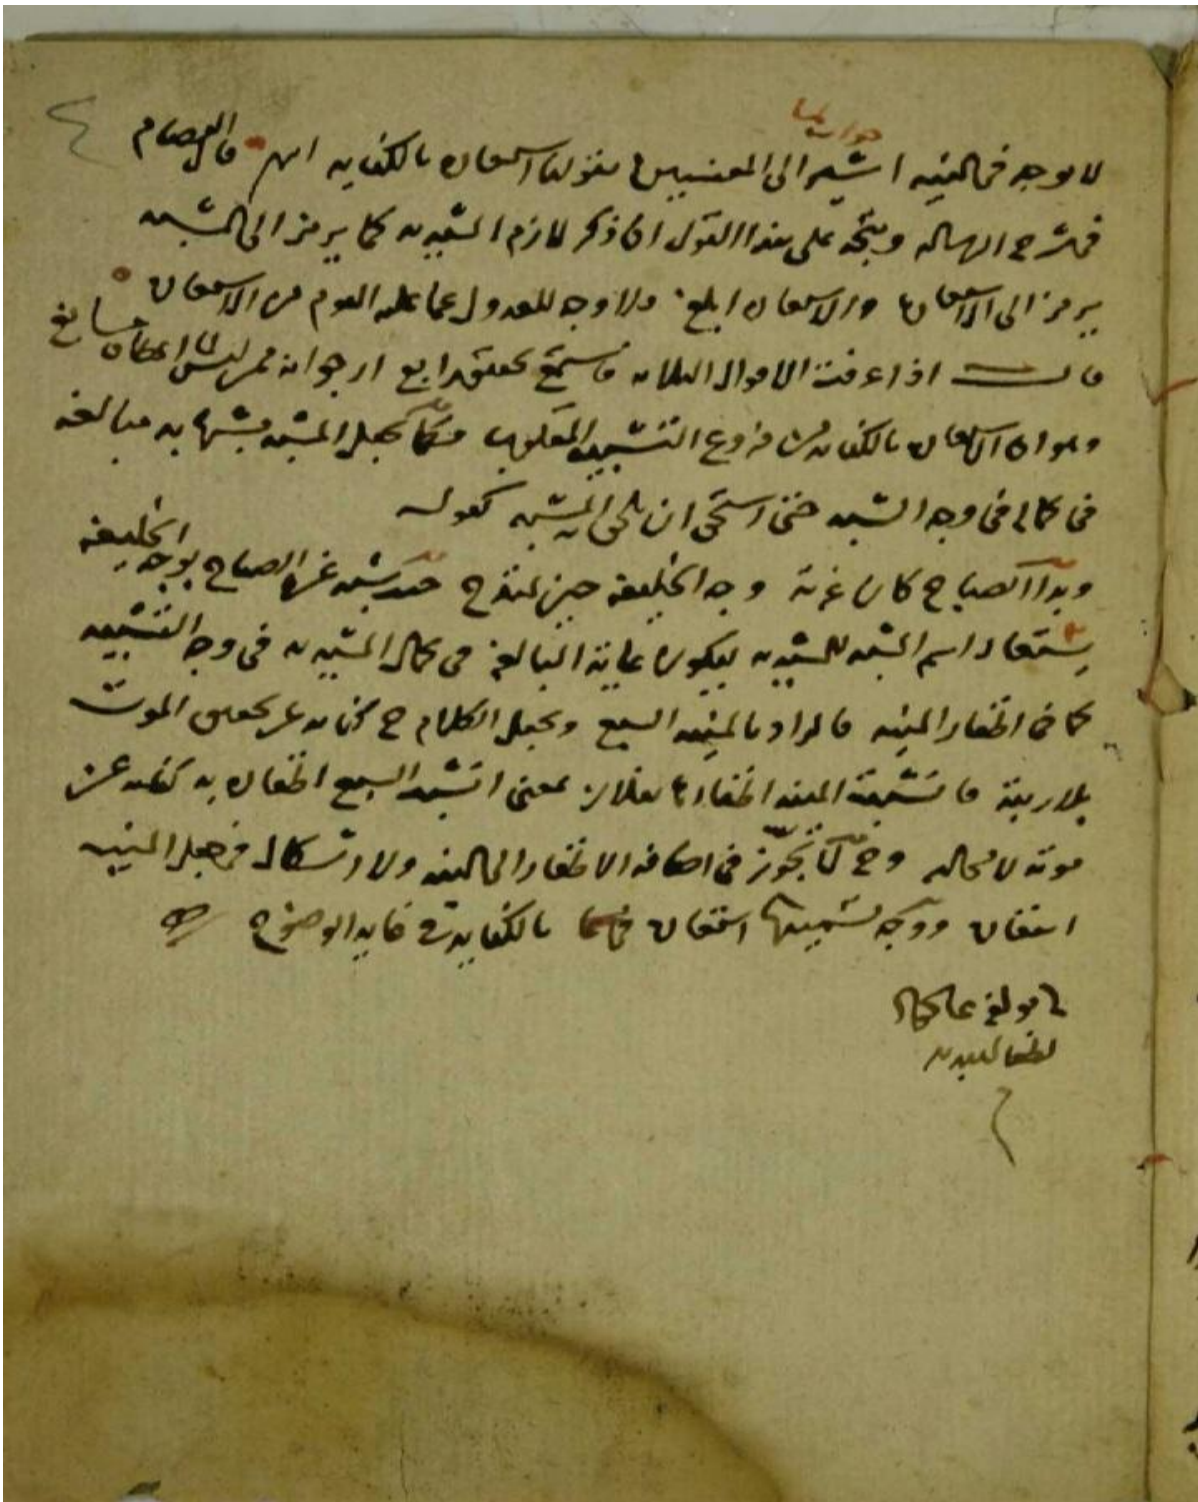 جواب لما
لا يوجد في المنيه اشير الى المعنيين بقولنا استعاره بالكنايه اهـ قال العصام
في شرح الرساله ويتجه على هذا القول ان ذكر لازم المشبه به كما يرمز الى المشبه
يرمز الى الاستعاره والاستعاره ابلغ فلا وجه للعدول عما عليه القوم من الاستعاره
قال اذا عرفت الاقوال الثلاثه فاستمع تحقيق رابع ارجو انه ممن ليس لما اعطاه مانع
وهو ان الاستعاره بالكنايه من فروع التشبيه المقلوب فكما يجعل المشبه مشبها به مبالغه
في كماله في وجه الشبه حتى استحق ان يلحق به المشبه كقوله
وبدا الصباح كان غرته وجه الخليفه حين يمتدح فقد شبه غرة الصباح بوجه الخليفه
يستعار اسم المشبه للمشبه به ليكون غاية المبالغه في كمال المشبه به في وجه التشبيه
كما في اظفار المنيه فالمراد بالمنيه السبع ويجعل الكلام ح كنايه عن تحقق الموت
بلا ريبة فانشبت المنيه اظفارها بفلان بمعنى انشب السبع اظفاره به كنايه عن
موته لا محاله وح لا تجوز في اضافه الاظفار الى المنيه ولا اشكال في جعل المنيه
استعاره ووجه تسميتها استعاره بالكنايه في غايه الوضوح